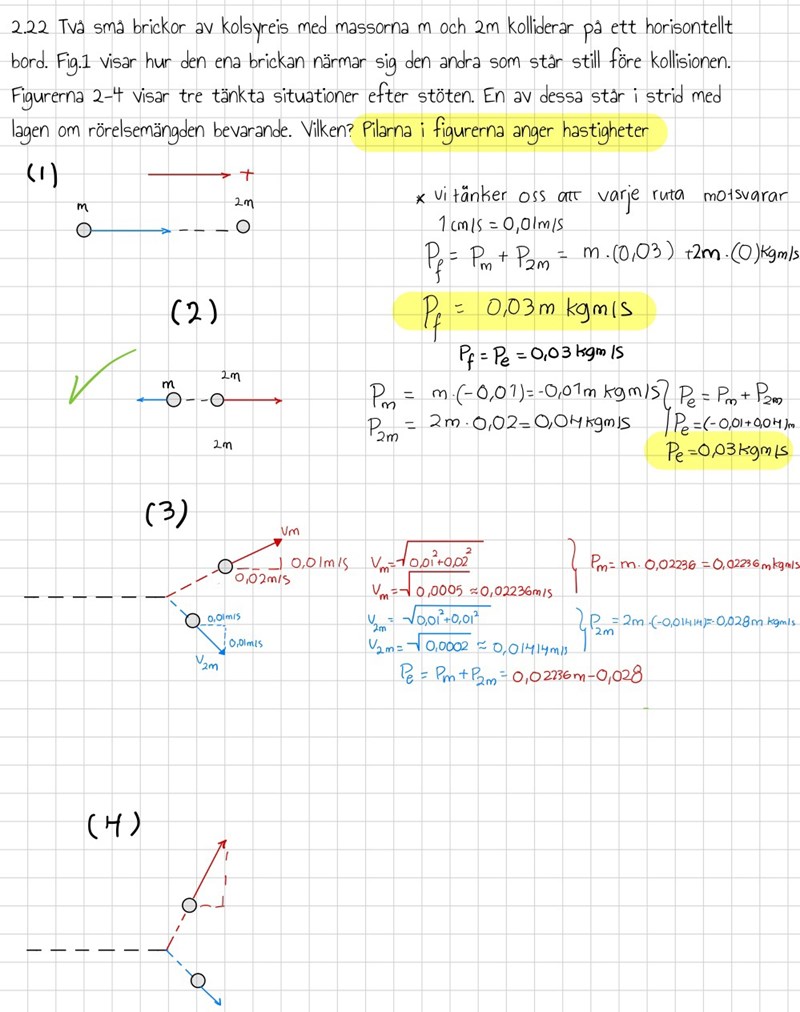 2.22 Två små brickor av kolsyreis med massorna m och 2m kolliderar på ett horisontellt
bord. Fig.1 visar hur den ena brickan närmar sig den andra som står still före kollisionen.
Figurerna 2-4 visar tre tänkta situationer efter stöten. En av dessa står i strid med
lagen om rörelsemängden bevarande. Vilken? Pilarna i figurerna anger hastigheter
(1)
+
m
2m
* vi tänker oss att varje ruta motsvarar
1cm/s = 0,01m/s
Pf = Pm + P2m = m·(0,03) + 2m·(0)kgm/s
Pf = 0,03m kgm/s
Pf = Pe = 0,03kgm/s
(2)
m
2m
2m
Pm = m·(-0,01)=-0,01m kgm/s
P2m = 2m·0,02=0,04kgm/s
Pe = Pm + P2m
Pe=(-0,01+0,04)m
Pe=0,03kgm/s
(3)
Vm
0,01m/s
0,02m/s
0,01m/s
0,01m/s
V2m
Vm=√0,01²+0,02²
Vm=√0,0005 ≈0,02236m/s
Pm = m·0,02236 = 0,02236mkgm/s
V2m= √0,01²+0,01²
V2m=√0,0002 ≈ 0,01414m/s
P2m = 2m·(-0,01414)=-0,028m kgm/s
Pe = Pm + P2m = 0,02236m-0,028
(4)